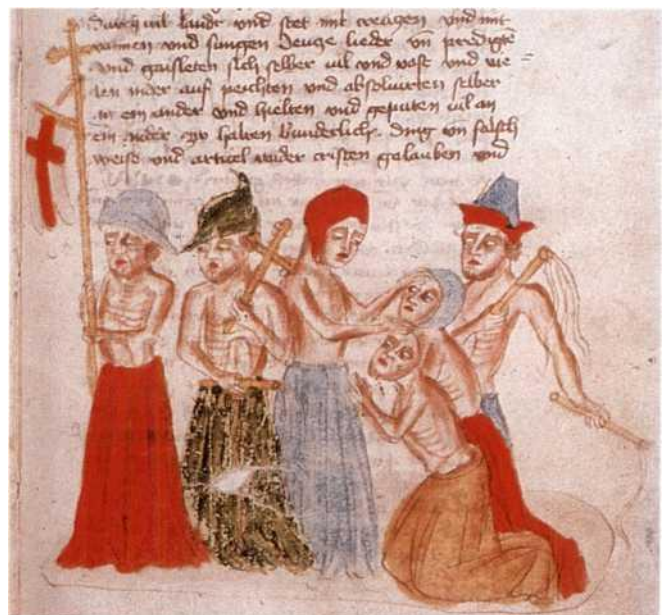 durch vil lande vnd stet mit creuczen vnd mit
vannen vnd sungen lieder vn predigte
vnd gaisleten sich selber vil vnd vast vnd vie
len nider auf peichten vnd absoluirten selber
ein ander vnd hielten vnd geputen vil an
ein ander zu halten wunderlich ding von falsch
weise vnd articel wider cristen gelauben vnd